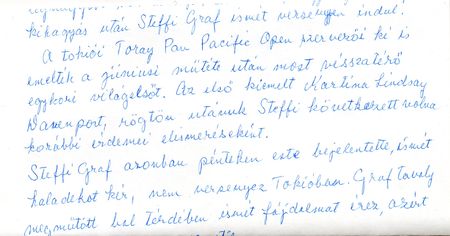 kihagyás után Steffi Graf ismét versenyen indul.
A tokiói Toray Pan Pacific Open szervezői ki is
emelték a júniusi műtéte után most visszatérő
egykori világelsőt. Az első kiemelt Martina Lindsay
Davenport, rögtön utánuk Steffi következett volna
korábbi érdemei elismeréseként.
Steffi Graf azonban pénteken este bejelentette, ismét
haladékot kér, nem versenyez Tokióban. Graf tavaly
megműtött bal térdében ismét fájdalmat érez, azért